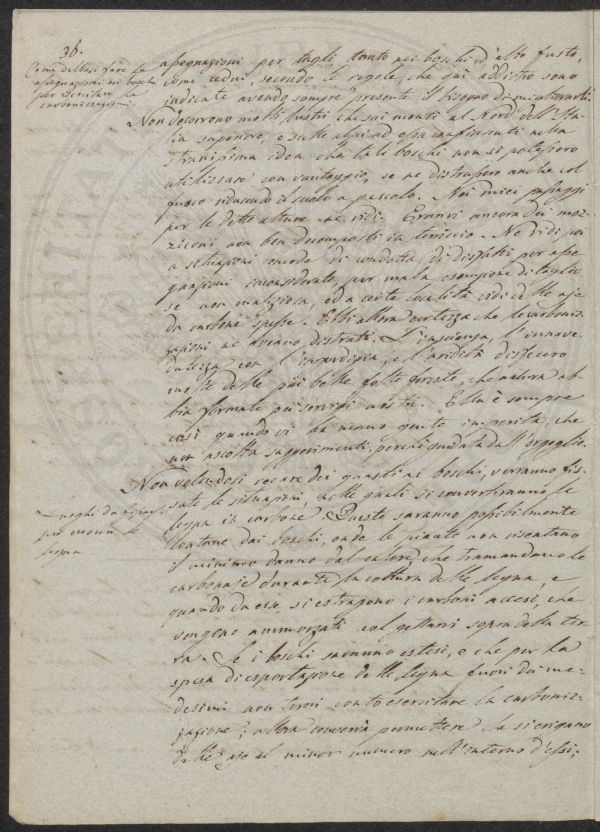 36.
Come debbasi fare le
assegnazioni nei boschi
per esercitare la
carbonizzazione.
assegnazioni per tagli, tanto nei boschi d'alto fusto,
come cedui, secondo le regole, che qui addietro sono
indicate avendo sempre presente il bisogno di
Non decorrono molti lustri che sui monti al Nord dell'Ita-
lia superiore, e sulle alpi ad essa confinanti nella
stranissima idea che tali boschi non si potessero
utilizzare con vantaggio, se ne distrussero anche col
fuoco riducendo il suolo a pascolo. Nei miei passaggi
per le dette alture ne vidi. Eranvi ancora dei moz-
ziconi non ben decomposti in terriccio. Ne vidi poi
a situazioni comode di condotta, di disfatti per asse-
gnazioni inconsiderate, per mala esenzione di taglio
se non maliziosa, ed a certe località vidi delle aje
da carbone spesse. Ebbi allora certezza che le carboniz-
zazioni ne aveano distrutti. L'insipienza, l'innave-
dutezza con l'incuria, e l'avidità disfecero
molte delle più belle folte foreste, che natura ab-
bia formate pei servizi nostri. Ella è sempre
così quando vi ha meno gente imperita, che
non ascolta suggerimenti, perchè guidata dall'orgoglio.
Luoghi da
può cuocere le
legna
Non volendosi recare dei guasti ai boschi, verranno fis-
sate le situazioni, nelle quali si convertiranno le
legna in carbone. Queste saranno possibilmente
lontane dai boschi, onde le piante non risentano
il minimo danno dal calore, che tramandano le
carbonaje durante la cottura delle legna, e
quando da esse si estraggono i carboni accesi, che
vengono ammorzati col gettarvi sopra della ter-
ra. Se i boschi saranno estesi, e che per la
spesa di esportazione delle legna fuori dai me-
desimi non torni conto esercitare la carboniz-
zazione; allora converrà permettere che si erigano
delle aje al minor numero nell'interno d'essi;